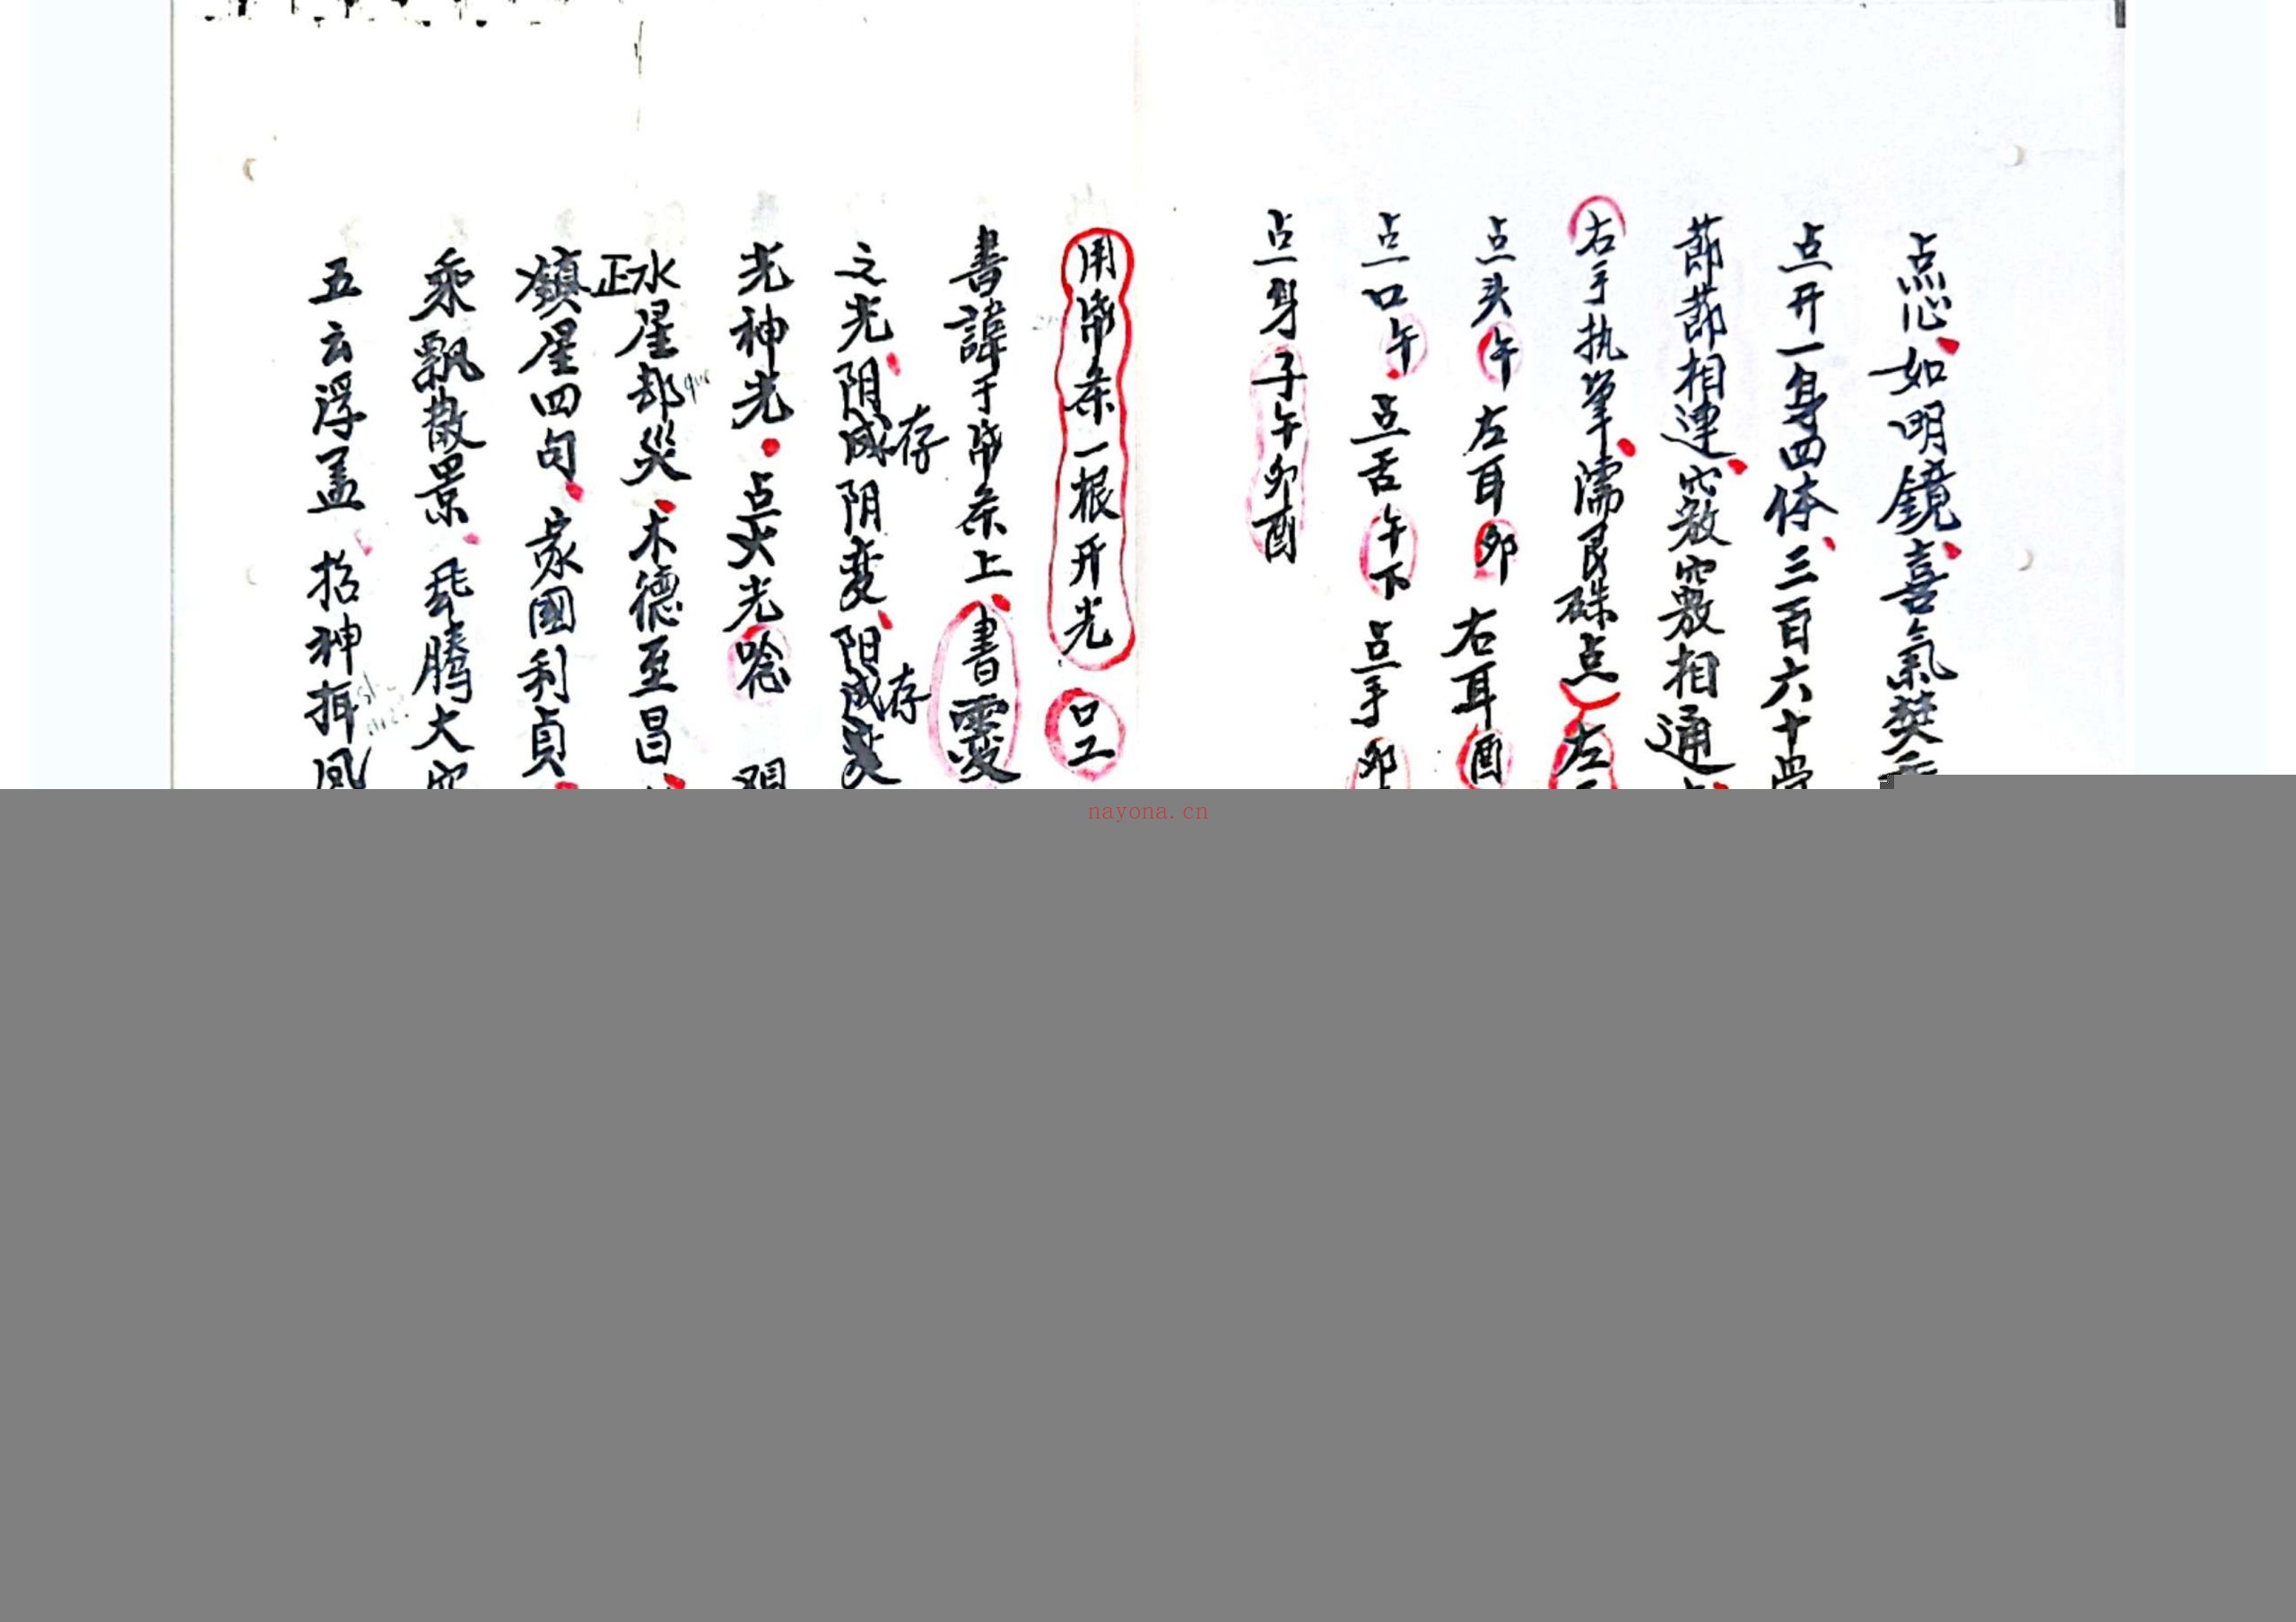 点心如明鏡喜氣
点开一身四体三百六十
節節相連穴竅穴竅相通
右手执筆濡硃点左
点头午左耳卯右耳酉
点口午点舌午下点手卯
点身子午卯酉
用条一根开光
書諱于条上書靈
之光阴咸阴变阳咸
存
存
光神光点火光唸
水星却災木德至昌
正
鎮星四句家國利貞
乘飘散景飛腾大
五云浮盖招神揖
nayona.cn